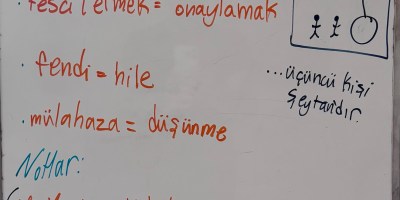 · tescil etmek = onaylamak
· fendi = hile
...üçüncü kişi
şeytandır.
· mülahaza = düşünme
Notlar: